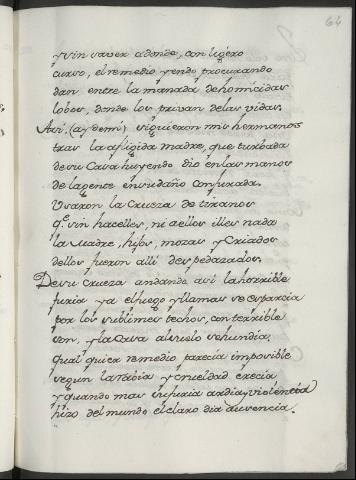 64
y sin saver adonde, con ligero
curso, el remedio yendo procurando
dan entre la manada de homicidas
lobos, donde los privan de las vidas.
Assi, (ay de mi) siguieron mis hermanos
tras la afligida madre, que turbada
de su Casa huyendo dio en las manos
de la gente en su daño conjurada.
Usaron la Crueza de tiranos
q.e sin hacelles, ni a ellos illes nada
la Madre, hijos, mozas y Criados
dellos fueron alli despedazados.
De su crueza andando assi la horrible
furia ya el fuego y llamas se esparcia
por los sublimes techos, con terrible
son, y la Casa al suelo se hundia.
qual quier remedio parecia imposible
segun la rabia y crueldad crecia
y quando mas su furia ardia y violencia
hizo del mundo el claro dia ausencia.